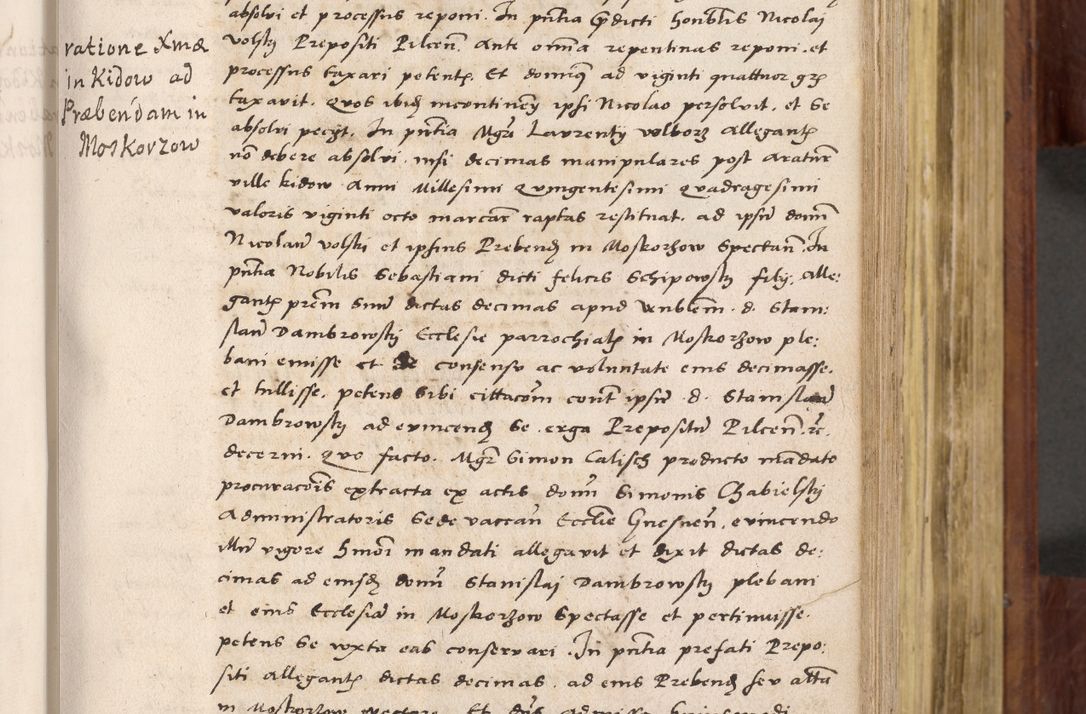 ratione Xmæ
in Kidow ad
Præbendam in
Moskorzow
absolvi et processus reponi. In pñtia p̃dicti honblis Nicolaj
volsky Prepositi Pilceñ. Ante omia repentinas reponi et
processus taxari petent. Et dominq ad viginti quattuor grz
taxavit. Quos ibidz incontineñ ipsi Nicolao persolvit. et se
absolvi pecijt. In pñtia Mgri Laurentij volborz Allegant
nõ debere absolvi. nisi decimas manipulares post araturã
ville kidow Anni Millesimi Quingentesimi Quadragesimi
valoris viginti octo marcar raptas restituat. ad ipsũ domin
Nicolaũ volski et ipsius Prebendz in Moskorzow spectañ. In
pñtia Nobilis Sebastiani dicti felicis Schipowsky filij. Alle:
gantz prem suũ dictas decimas apud venblem. d. Stani:
slaũ Dambrowskij Ecclesie parrochialz in Moskorzow ple:
bani emisse et de consensu ac voluntate eius decimasse.
et tullisse. petens sibi cittacom cont ipsũ d. Stanislaũ
Dambrowsky ad evincendz se erga Prepositũ Pilceñ. rc.
decerni. Quo facto. Mgr Simon Calisch producto mandato
procuracois extracta ex actis domi Simonis Chabielskij
Administratoris Sede vaccañ Ecclie Gnesneñ. evincendo
illũ vigore hmoi mandati allegavit et dixit dictas de:
cimas ad eiusdz domi Stanislaj Dambrowsky plebani
et eius Ecclesiã in Moskorzow spectasse et pertinuisse.
petens se iuxta eas conservari. In pñtia prefati Prepo:
siti Allegantz dictas decimas. ad eius Prebendz seu altã
in Moskorzow